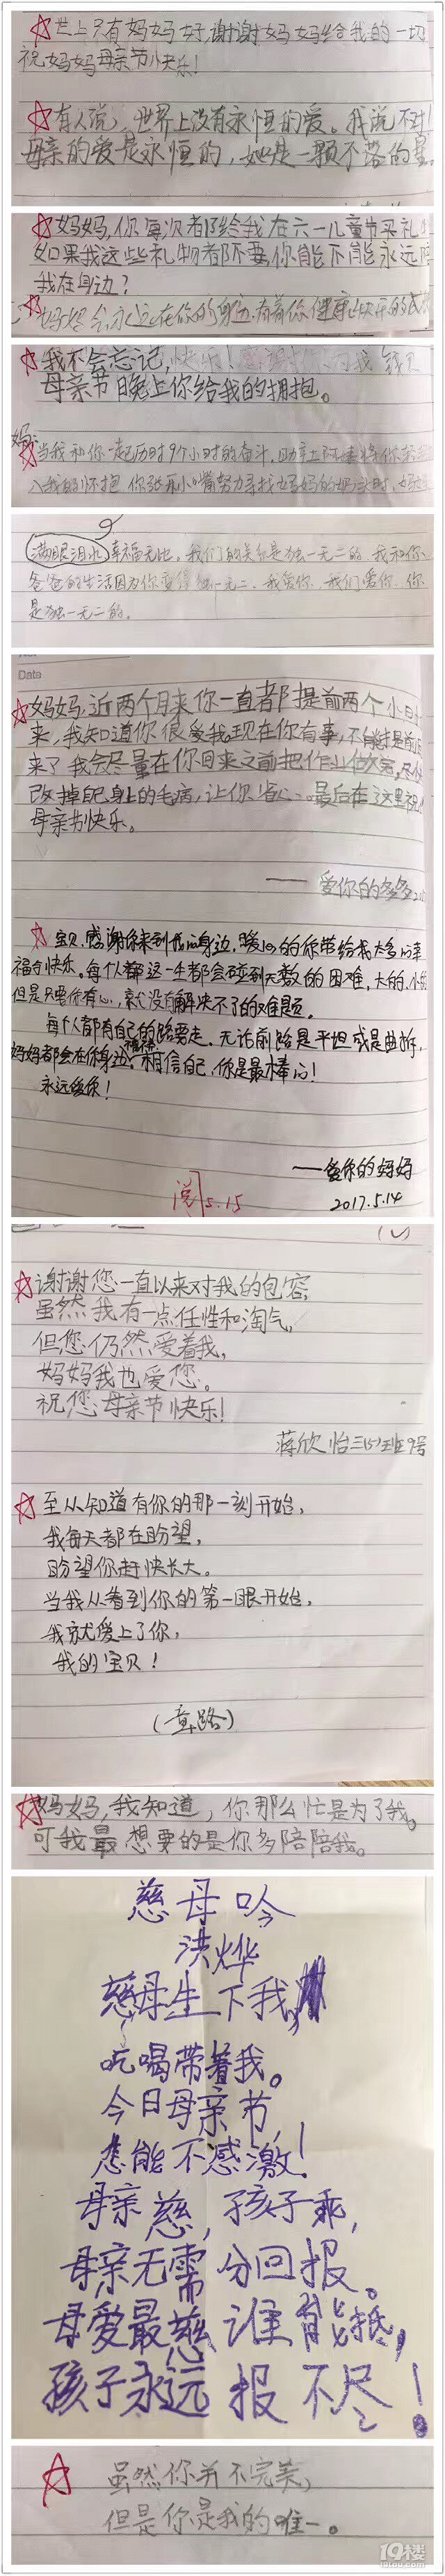 世上只有妈妈好,谢谢妈妈给我的一切
祝妈妈母亲节快乐!
有人说,世界上没有永恒的爱。我说不对!
母亲的爱是永恒的,她是一颗不落的星。
妈妈,你每次都给我在六一儿童节买礼
如果我这些礼物都不要,你能不能永远陪
我在身边?
妈妈会永远在你的身边,看着你健康快乐的成
我不会忘记,
母亲节晚上你给我的拥抱。
妈:
当我和你一起历时9个小时的奋斗,助产士阿姨将你
入我的怀抱,你张开小嘴努力寻找妈妈的奶水时,
满眼泪水,幸福无比。我们的关系是独一无二的,我和你
爸爸的生活因为你变得独一无二,我爱你,我们爱你,你
是独一无二的。
Date
妈妈,近两个月来你一直都提前两个小时
来,我知道你很爱我。现在你有事,不能提前
来了我会尽量在你回来之前把作业做完,尽
改掉自己身上的毛病,让你省心。最后在这里祝
母亲节快乐。
——爱你的多多
宝贝,感谢你来到我的身边,暖心的你带给我太多的幸
福和快乐。每个人都这一生都会碰到无数的困难,大的、小的
但是只要你有心,就没有解决不了的难题。
每个人都有自己的路要走。无论前路是平坦或是曲折,
妈妈都会在你身边,相信自己,你是最棒的!
永远爱你!
——爱你的妈妈
2017.5.14
5.15
谢谢您一直以来对我的包容,
虽然我有一点任性和淘气,
但您仍然爱着我,
妈妈我也爱您。
祝您母亲节快乐!
蒋欣怡三(5)班9号
至从知道有你的那一刻开始,
我每天都在盼望,
盼望你赶快长大。
当我从看到你的第一眼开始,
我就爱上了你,
我的宝贝!
(章路)
妈妈,我知道,你那么忙是为了我。
可我最想要的是你多陪陪我。
慈母吟
洪烨
慈母生下我,
吃喝带着我。
今日母亲节,
怎能不感激!
母亲慈,孩子乖,
母亲无需分回报。
母爱最慈谁能抵,
孩子永远报不尽!
虽然你并不完美,
但是你是我的唯一。
19楼
19lou.com